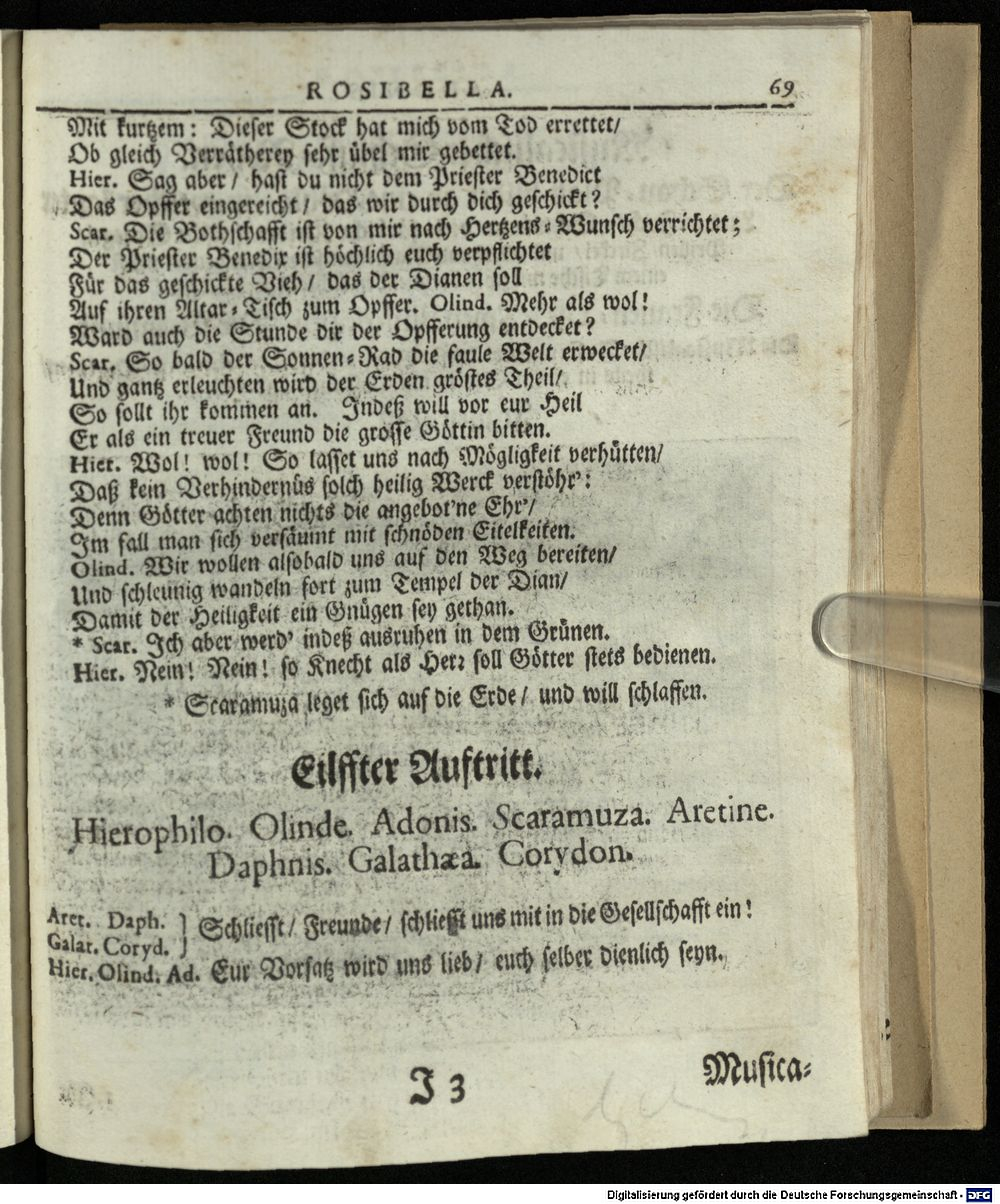 ROSIBELLA. 69
Mit kurtzem: Dieser Stock hat mich vom Tod errettet/
Ob gleich Verrätherey sehr übel mir gebettet.
Hier. Sag aber/ hast du nicht dem Priester Benedict
Das Opffer eingereicht/ das wir durch dich geschickt?
Scar. Die Bothschafft ist von mir nach Hertzens-Wunsch verrichtet;
Der Priester Benedix ist höchlich euch verpflichtet
Für das geschickte Vieh/ das der Dianen soll
Auf ihren Altar-Tisch zum Opffer. Olind. Mehr als wol!
Ward auch die Stunde dir der Opfferung entdecket?
Scar. So bald der Sonnen-Rad die faule Welt erwecket/
Und gantz erleuchten wird der Erden gröstes Theil/
So sollt ihr kommen an. Indeß will vor eur Heil
Er als ein treuer Freund die grosse Göttin bitten.
Hier. Wol! wol! So lasset uns nach Mögligkeit verhütten/
Daß kein Verhindernüs solch heilig Werck verstöhr':
Denn Götter achten nichts die angebot'ne Ehr'/
Im fall man sich versäumt mit schnöden Eitelkeiten.
Olind. Wir wollen alsobald uns auf den Weg bereiten/
Und schleunig wandeln fort zum Tempel der Dian/
Damit der Heiligkeit ein Gnügen sey gethan.
* Scar. Ich aber werd' indeß ausruhen in dem Grünen.
Hier. Nein! Nein! so Knecht als Herr soll Götter stets bedienen.
* Scaramuza leget sich auf die Erde/ und will schlaffen.
Eilffter Auftritt.
Hierophilo. Olinde. Adonis. Scaramuza. Aretine.
Daphnis. Galathæa. Corydon.
Aret. Daph. } Schliesst/ Freunde/ schliesst uns mit in die Gesellschafft ein!
Galat. Coryd. }
Hier. Olind. Ad. Eur Vorsatz wird uns lieb/ euch selber dienlich seyn.
J 3 Musica-
Digitalisierung gefördert durch die Deutsche Forschungsgemeinschaft - DFG